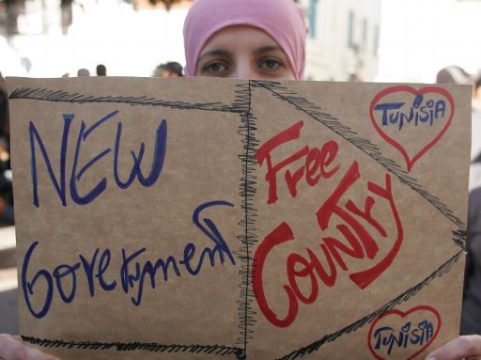 NEW
Goverɳment
Free
COUNTRY
TUNISIA
TUNISIA